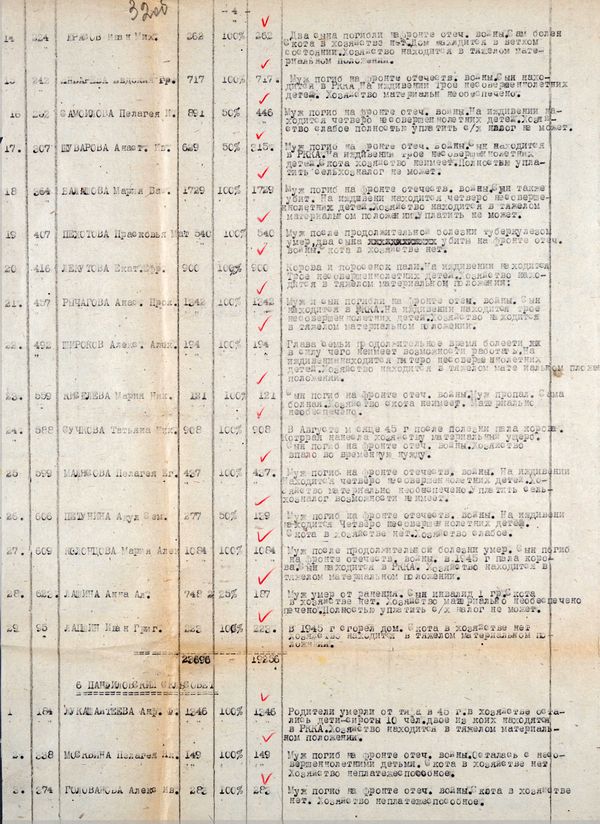 32об
- 4 -
14 324 ЕРЯЗОВ Иван Мих. 262 100% 262 Два сына погибли на фронте отеч. войны. Сам болен
Скота в хозяйстве нет. Дом находится в ветхом
состоянии. Хозяйство находится в тяжелом мате-
риальном положении.
15 242 Евдокия Гр. 717 100% 717. Муж погиб на фронте отечеств. войны. Сын нахо-
дится в РККА. На иждивении Трое несовершеннолетних
детей. Хозяйство материально необеспечено.
16 252 САМОЙЛОВА Пелагея И. 891 50% 446 Муж погиб на фронте отеч. войны. На иждивении на-
ходится четверо несовершеннолетних детей. Хозяй-
ство слабое полностью уплатить с/х налог не может.
17. 307 ШУВАРОВА Анаст. 629 50% 315 Муж погиб на фронте отеч. войны. Сын находится
в РККА. На иждивении трое несовершеннолетних
детей. Скота хозяйство неимеет. Полностью упла-
тить сельхозналог не может.
18 364 БАЛАШОВА Мария Вас. 1729 100% 1729 Муж погиб на фронте отечеств. войны. Сын также
убит. На иждивении находится четверо несоверше-
ннолетних детей. Хозяйство находится в тяжелом
материальном положении. Уплатить не может.
19 407 ПЕХОТОВА Прасковья Мат 540 100% 540 Муж после продолжительной болезни туберкулезом
умер, два сына хххххххххххх убиты на фронте отеч.
войны. Скота в хозяйстве нет.
20 416 ЛЕКУТОВА Екат. Ефр. 900 100% 900 Корова и поросенок пали. На иждивении находится
Трое несовершеннолетних детей. Хозяйство нахо-
дится в тяжелом материальном положении:
21. 457 РЫЧАГОВА Анаст. Прок. 1342 100% 1342 Муж и сын погибли на фронте отеч. войны. Сын
находится в РККА. На иждивении находится трое
несовершеннолетних детей. Хозяйство находится
в тяжелом материальном положении.
22. 492 ШИРОКОВ Алекс. Алек. 194 100% 194 Глава семьи продолжительное время болеет хх
в силу чего неимеет возможности работать. На
иждивении находится пятеро несовершеннолетних
детей. Хозяйство находится в тяжелом мате иальном
положении.
23. 559 КИСЕЛЕВА Мария Ник. 121 100% 121 Сын погиб на фронте отеч. войны. Муж пропал. Сама
больная. Хозяйство скота неимеет. Материально
необеспечено.
24. 588 СУЧКОВА Татьяна Мих. 908 100% 908 В Августе м сяце 45 г после болезни пала корова.
Которая нанесла хозяйству материальный ущерб.
Сын погиб на фронте отеч. войны. Хозяйство
впало во временную нужду.
25 599 Пелагея Ег. 427 100% 427. Муж погиб на фронте отечеств. войны. На иждивении
находится четверо несовершеннолетних детей. Хо-
зяйство материально необеспечено. Уплатить сель-
хозналог возможности неимеет.
26. 606 ПИЧУНИНА Акул Сем. 277 50% 139 Муж погиб на фронте отечеств. войны. На иждивени
находится Четверо несовершеннолетних детей.
Скота в хозяйстве нет. Хозяйство слабое.
27. 609 КОЛОНЦОВА Мария Алек 1084 100% 1084 Муж после продолжительной болезни умер. Сын погиб
на фронте отечеств. войны. в 1945 г пала коро-
ва. Сын находится в РККА. Хозяйство находится в
тяжелом материальном положении.
28. 623 ЛАШИНА Анна Ал. 748 25% 187 Муж умер от ранения. Сын инвалид 1 гр. Скота
в хозяйстве нет. Хозяйство материально необеспечено
печено. Полностью уплатить с/х налог не может.
29 95 ЛАШИН Иван Григ. 223 100% 223. В 1945 г сгорел дом. Скота в хозяйстве нет
Хозяйство находится в тяжелом материальном по-
ложении.
23696 19256
6 ПАНФИЛОВСКИЙ СЕЛЬСОВЕТ
1 184 1346 100% 1346 Родители умерли от тифа в 45 г. в хозяйстве оста-
лись дети-сироты 10 чел. двое из коих находятся
в РККА. Хозяйство находится в тяжелом материаль-
ном положении.
2. 338 МОСКВИНА Пелагея Ик. 149 100% 149 Муж погиб на фронте отеч. войны. Осталась с несо-
вершеннолетними детьми. Скота в хозяйстве нет
Хозяйство неплатежеспособное.
3. 374 ГОЛОВАНОВА Алекс Ив. 283 100% 283 Муж погиб на фронте отеч. войны. Скота в хозяйстве
нет. Хозяйство неплатежеспособное.